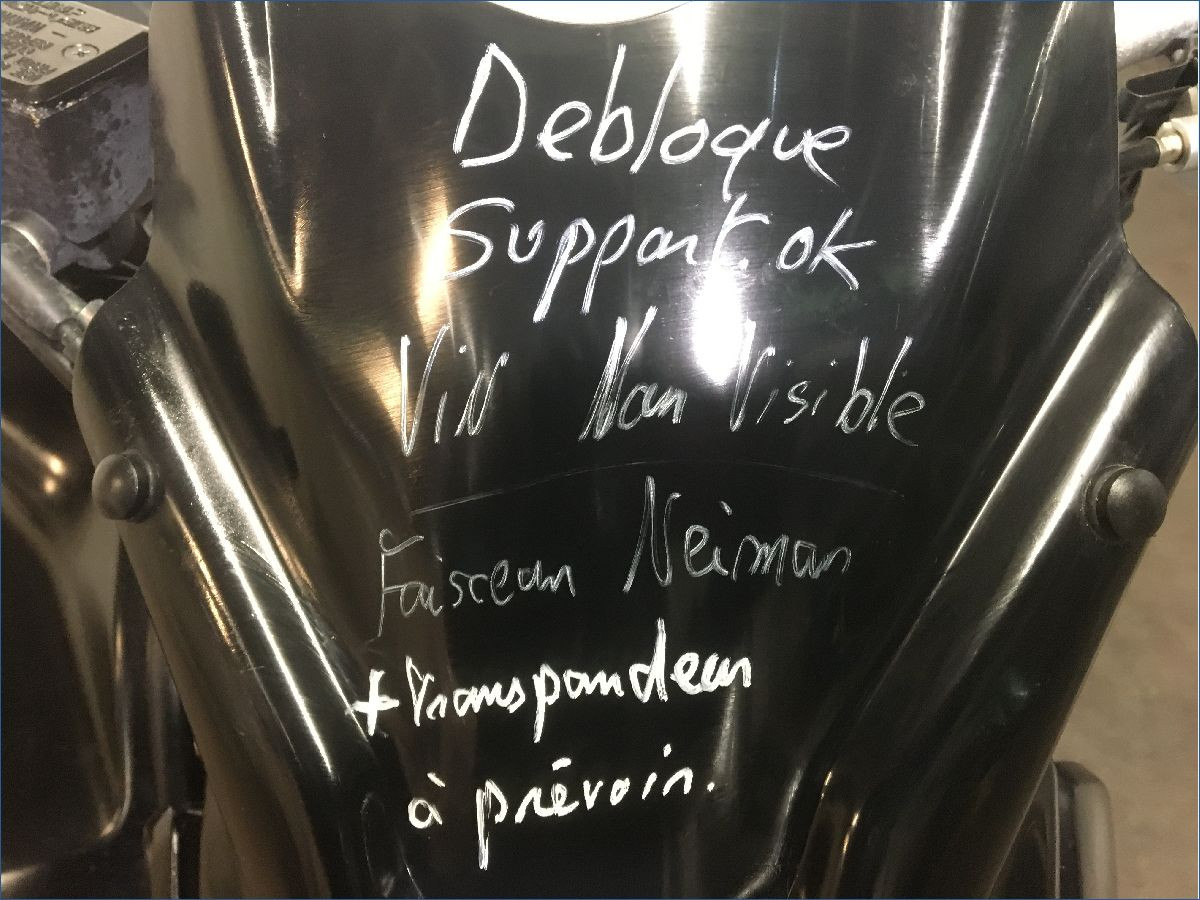 Debloque
Support. ok
ViN Non Visible
Faisceau Neiman
+ transpondeur
à prévoir.